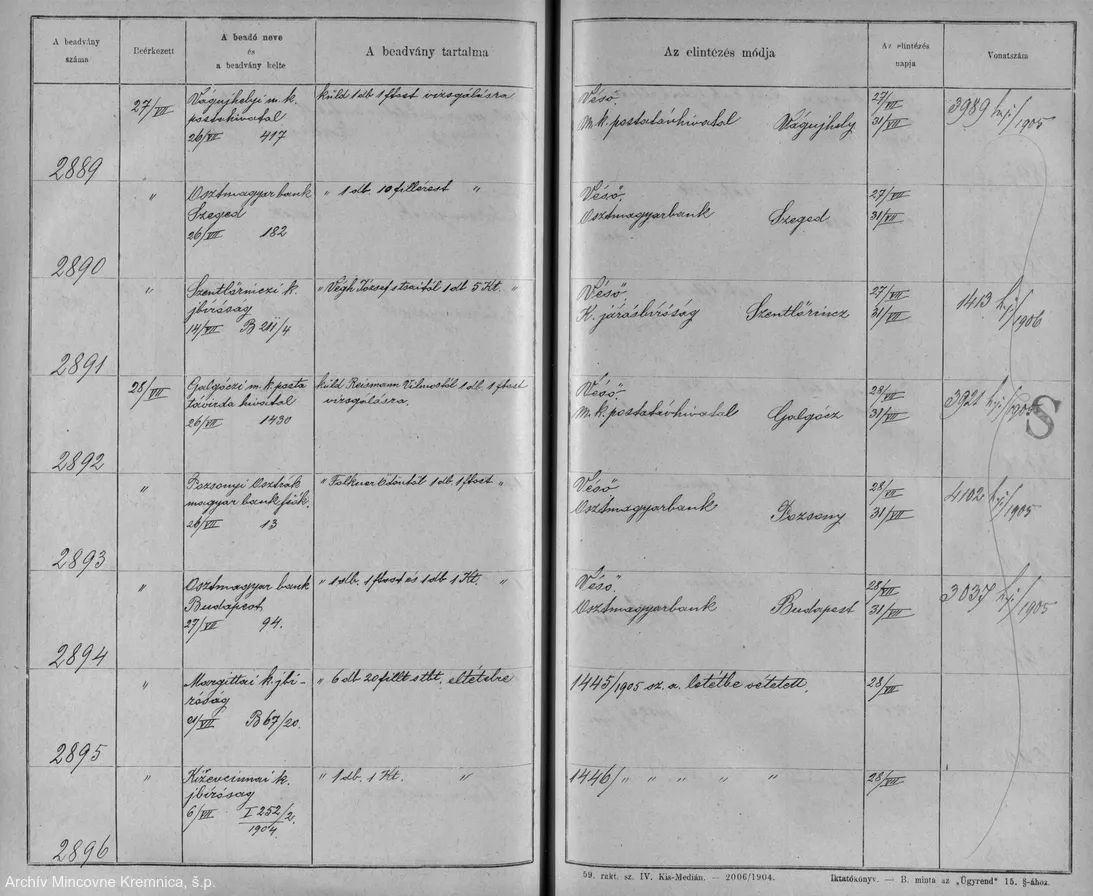 A beadvány száma
Beérkezett
A beadó neve és a beadvány kelte
A beadvány tartalma
Az elintézés módja
Az elintézés napja
Vonatszám
2889
27/VII
Vágujhelyi m. k.
postahivatal
26/VII 417
küld 1 db 1 ftost vizsgálásra
Véső.
M. k. postatávhivatal Vágujhely
27/VII
31/VII
3989
1905
2890
"
Osztmagyar bank
Szeged
26/VII 182
" 1 db. 10 fillérest "
Véső.
Osztmagyarbank Szeged
27/VII
31/VII
2891
"
Szentlőrinczi k.
jbíróság
14/VII B 211/4
" Végh József 1 db 5 Kt. "
Véső.
K. járásbíróság Szentlőrincz
27/VII
31/VII
1413
1906
2892
28/VII
Galgóczi m. k. posta
távirda hivatal
26/VII 1430
küld Reismann Vilmostól 1 db. 1 ftost
vizsgálásra.
Véső
M. k. postatávhivatal Galgócz
28/VII
31/VII
3921
1905
S
2893
"
Pozsonyi Osztrák
magyar bank fiók.
26/VII 13
" Falkner Ödöntől 1 db. 1 ftost "
Véső
Osztmagyarbank Pozsony
28/VII
31/VII
4102
1905
2894
"
Osztmagyar bank
Budapest
27/VII 94.
" 1 db. 1 ftost és 1 db 1 Kt. "
Véső.
Osztmagyarbank Budapest
28/VII
31/VII
3037
1905
2895
"
Margittai k. jbi-
róság
VII B 67/20.
" 6 db 20 fillt eltételre
1445/1905 sz. a. letétbe vétetett.
28/VII
2896
"
k.
jbíróság
6/VII I 252/2
1904.
" 1 db. 1 Kt. "
1446/ " " " " "
28/VII
59. rakt. sz. IV. Kis-Medián. — 2006/1904.
Iktatókönyv. — B. minta az „Ügyrend" 15. §-ához.
Archív Mincovne Kremnica, š.p.